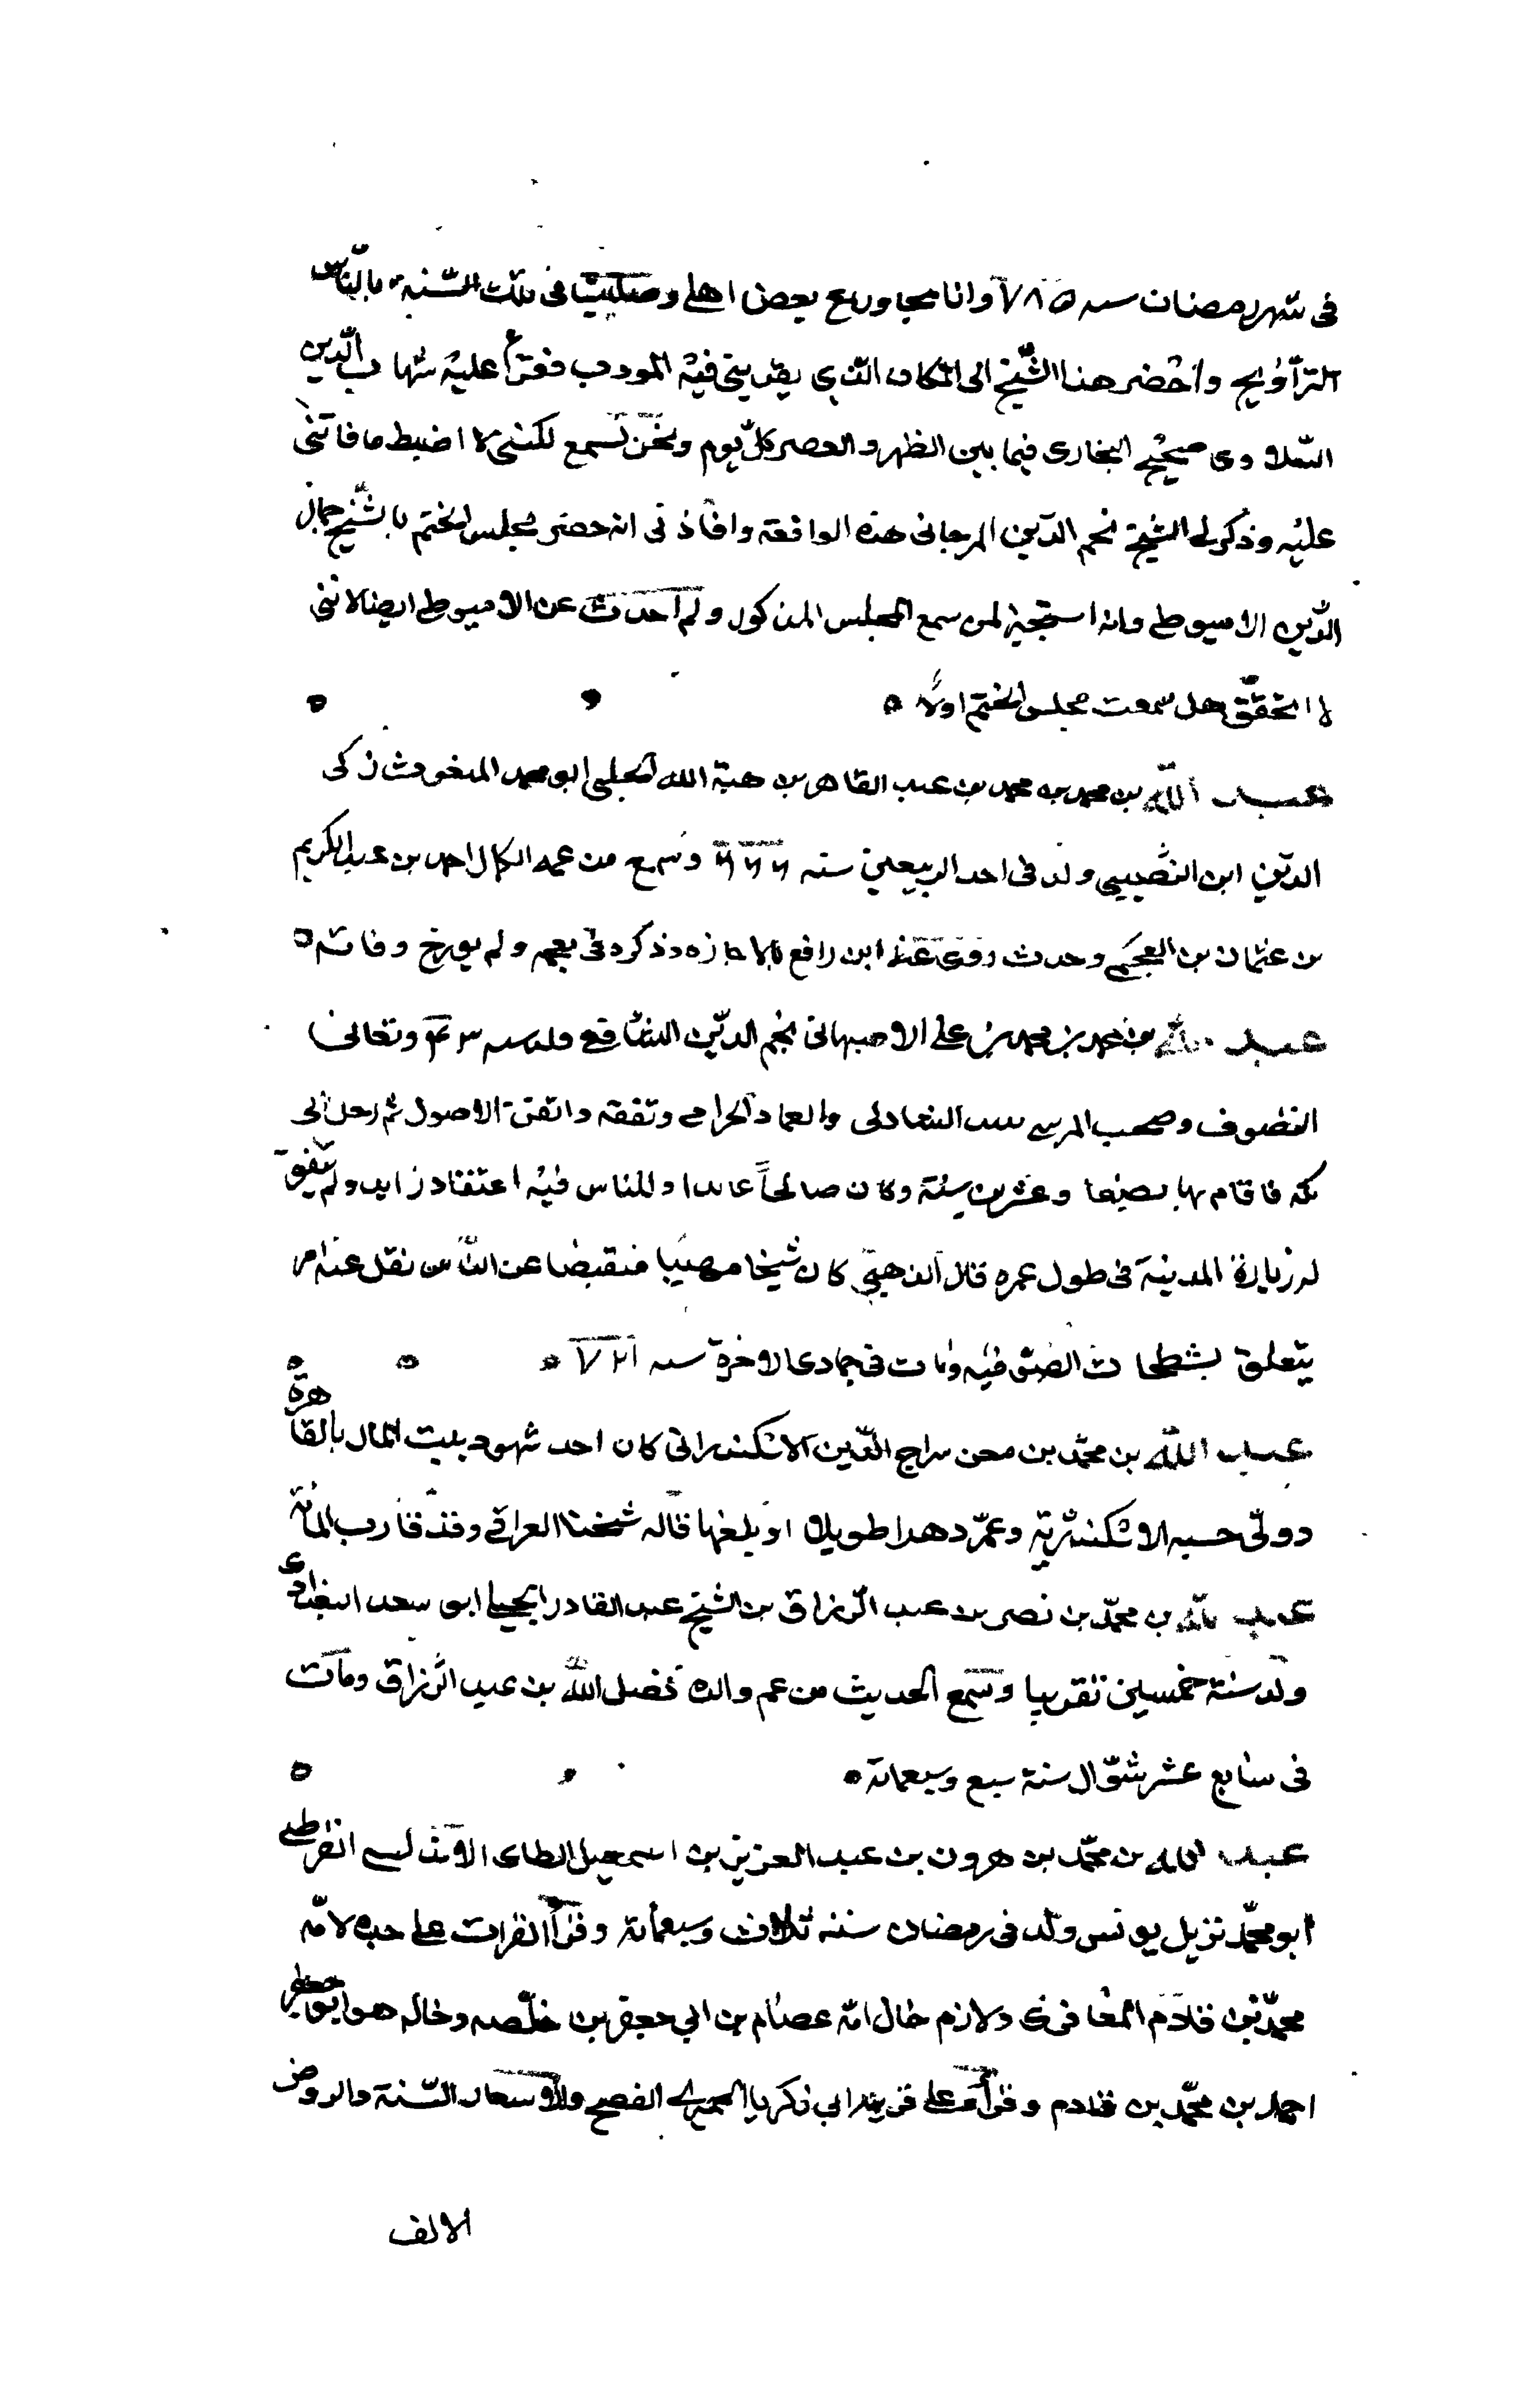 فى شهر رمضان سنه ٧٨٥ وانا مجاور مع بعض اهلى وصليت فى تلك السنة بالناس
التراويح واحضر هذا الشيخ الى المكان الذى يقرينى فيه المودب فقرأ عليه شهاب الدين
السلاوى صحيح البخارى فيما بين الظهر والعصر كل يوم ونحن نسمع لكننى لا اضبط ما فاتنى
عليه وذكر لى الشيخ نجم الدين المرجانى هذه الواقعة وافادنى انه حضر مجلس الختم بالشيخ جمال
الدين الاميوطى وانه استجيز لمن سمع المجلس المذكور ولم احدث عن الاميوطى ايضا لاننى
لا اتحقق هل سمعت مجلس الختم اولا
عبد الله بن محمد بن محمد بن عبد القاهر بن هبة الله الحلبى ابو محمد زكى
الدين ابن النصيبى ولد فى احد الربيعين سنه ٦٦٦ وسمع من عمه الكمال احمد بن عبد الكريم
بن عثمان بن العجمى وحدث روى عنه ابن رافع بالاجازه وذكره فى معجمه ولم يورخ وفاته
عبد الله بن محمد بن محمد بن على الاصبهانى نجم الدين الشافعى ولد سنه ٦٤٣ وتعانى
التصوف وصحب المرسى الشاذلى والعماد الحزامى وتفقه واتقن الاصول ثم رحل الى
مكه فاقام بها بضعا وعشرين سنة وكان صالحا عابدا وللناس فيه اعتقاد زايد ولم يتفق
له زيارة المدينة فى طول عمره قال الذهبى كان شيخا مهيبا منقبضا عن الناس نقل عنه امر
يتعلق بشطحات الصوفيه ومات فى جمادى الاخرة سنه ٧٢١
عبد الله بن محمد بن محمد سراج الدين الاسكندرانى كان احد شهود بيت المال بالقاهرة
وولى حسبه الاسكندرية وعمر دهرا طويلا او بلغها قاله شيخنا العراقى وقد قارب المائة
عبد الله بن محمد بن نصر بن عبد الرزاق بن الشيخ عبد القادر الجيلى ابو سعد البغدادى
ولد سنة خمسين تقريبا وسمع الحديث من عم والده فضل الله بن عبد الرزاق ومات
فى سابع عشر شوال سنة سبع وسبعمائة
عبد الله بن محمد بن هرون بن عبد العزيز بن اسمعيل الطاى الاندلسى القرطبى
ابو محمد نزيل يونس ولد فى رمضان سنه ثلاث وسبعمائة وقرأ القرات على جده لامه
محمد بن قادم المعافرى ولازم خال امه عصام بن ابى جعفر بن خلصه وخاله هو ابو جعفر
احمد بن محمد بن قادم وقرأ على قريبه ابى زكريا الحميرى الفصيح والاشعار الستة والروض
الالف